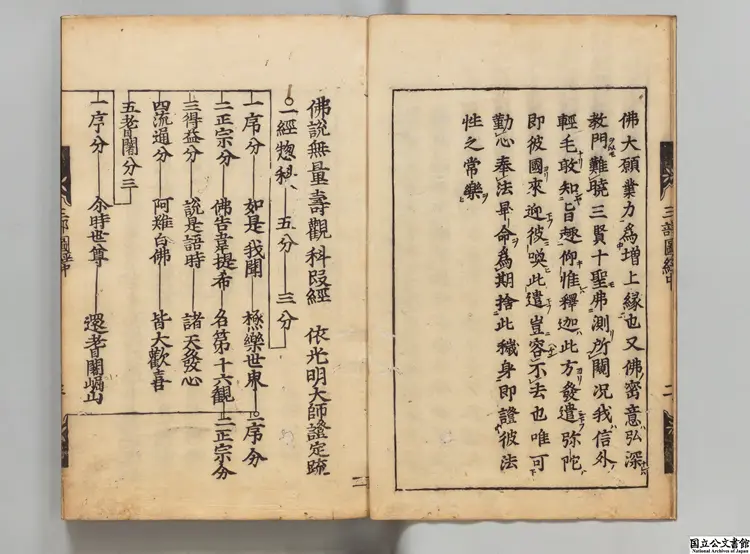 佛大願業力爲増上縁也又佛密意弘深
教門難曉三賢十聖弗測所闚況我信外
輕毛敢知旨趣仰惟釋迦此方發遣弥陀
即彼國來迎彼喚此遣豈容不去也唯可
勤心奉法畢命爲期捨此穢身即證彼法
性之常樂
佛說無量壽觀科段經 依光明大師證定疏
一經惣科 五分 三分
一序分 如是我聞 極樂世東 一序分
二正宗分 佛告韋提希 名第十六觀 二正宗分
三得益分 說是語時 諸天發心
四流通分 阿難白佛 皆大歡喜
五耆闍分三
一序分 尒時世尊 還耆闍崛山
国立公文書館
National Archives of Japan